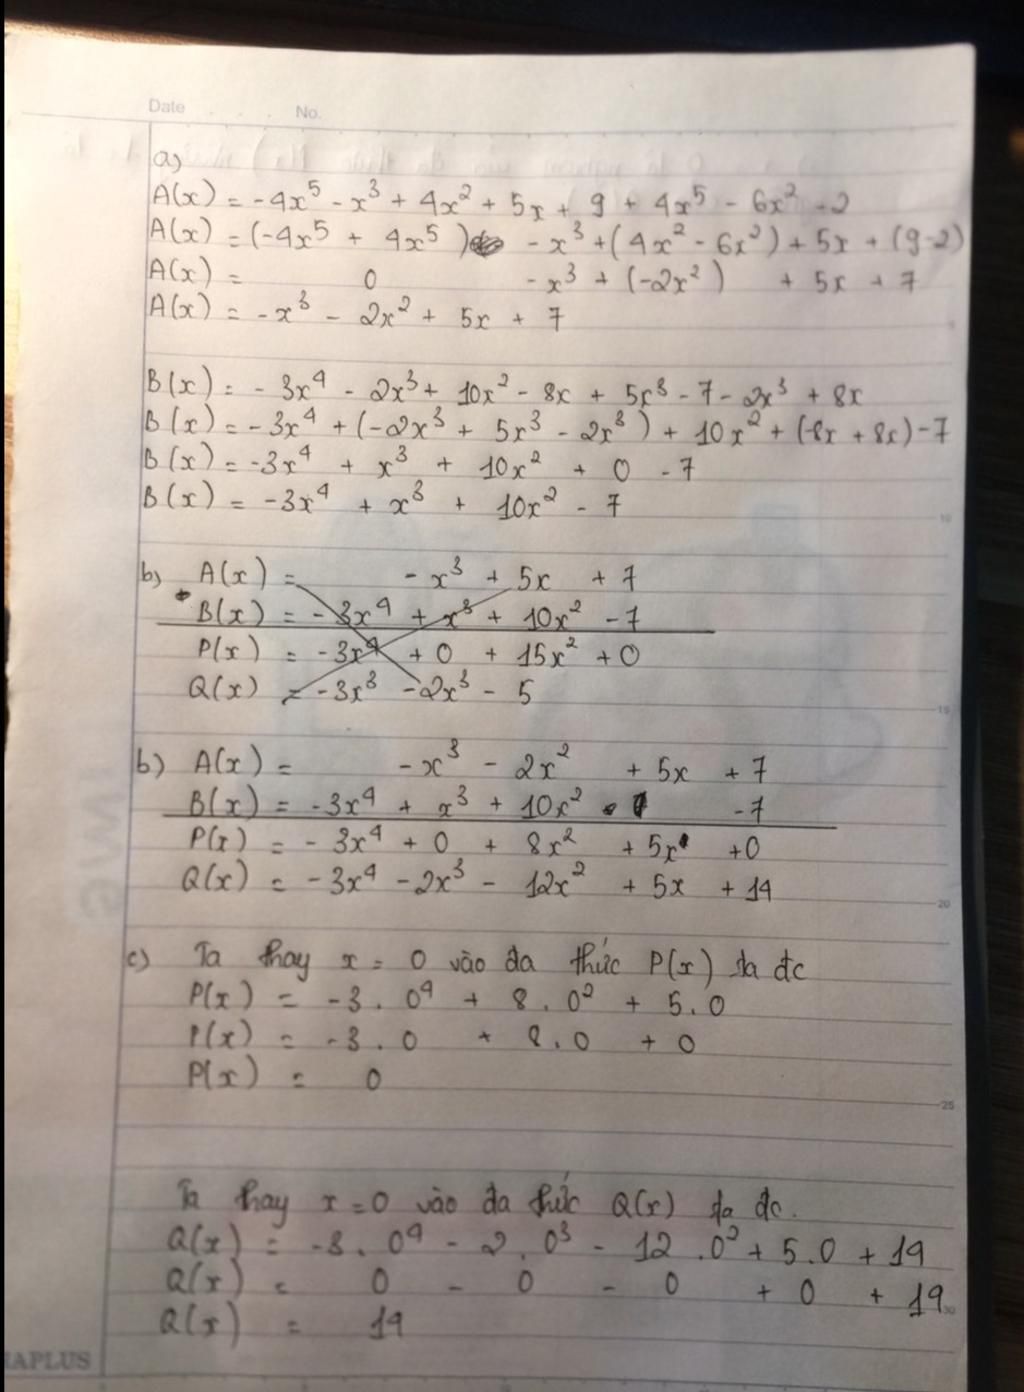 Date No.
a)
A(x) = -4x⁵ - x³ + 4x² + 5x + 9 + 4x⁵ - 6x² - 2
A(x) = (-4x⁵ + 4x⁵) - x³ + (4x² - 6x²) + 5x + (9-2)
A(x) = 0 - x³ + (-2x²) + 5x + 7
A(x) = -x³ - 2x² + 5x + 7
B(x) = -3x⁴ - 2x³ + 10x² - 8x + 5x³ - 7 - 2x³ + 8x
B(x) = -3x⁴ + (-2x³ + 5x³ - 2x³) + 10x² + (-8x + 8x) - 7
B(x) = -3x⁴ + x³ + 10x² + 0 - 7
B(x) = -3x⁴ + x³ + 10x² - 7
b) A(x) = - x³ + 5x + 7
B(x) = -3x⁴ + x³ + 10x² - 7
P(x) = -3x⁴ + 0 + 15x² + 0
Q(x) = -3x³ - 2x³ - 5
b) A(x) = -x³ - 2x² + 5x + 7
B(x) = -3x⁴ + x³ + 10x² -7
P(x) = -3x⁴ + 0 + 8x² + 5x +0
Q(x) = -3x⁴ - 2x³ - 12x² + 5x + 14
c) Ta thay x = 0 vào đa thức P(x) ta đc
P(x) = -3 . 0⁴ + 8 . 0² + 5.0
P(x) = -3 . 0 + 8.0 + 0
P(x) = 0
25
Ta thay x = 0 vào đa thức Q(x) ta đc.
Q(x) = -3. 0⁴ - 2. 0³ - 12 .0² + 5.0 + 14
Q(x) = 0 - 0 - 0 + 0 + 14
Q(x) = 14